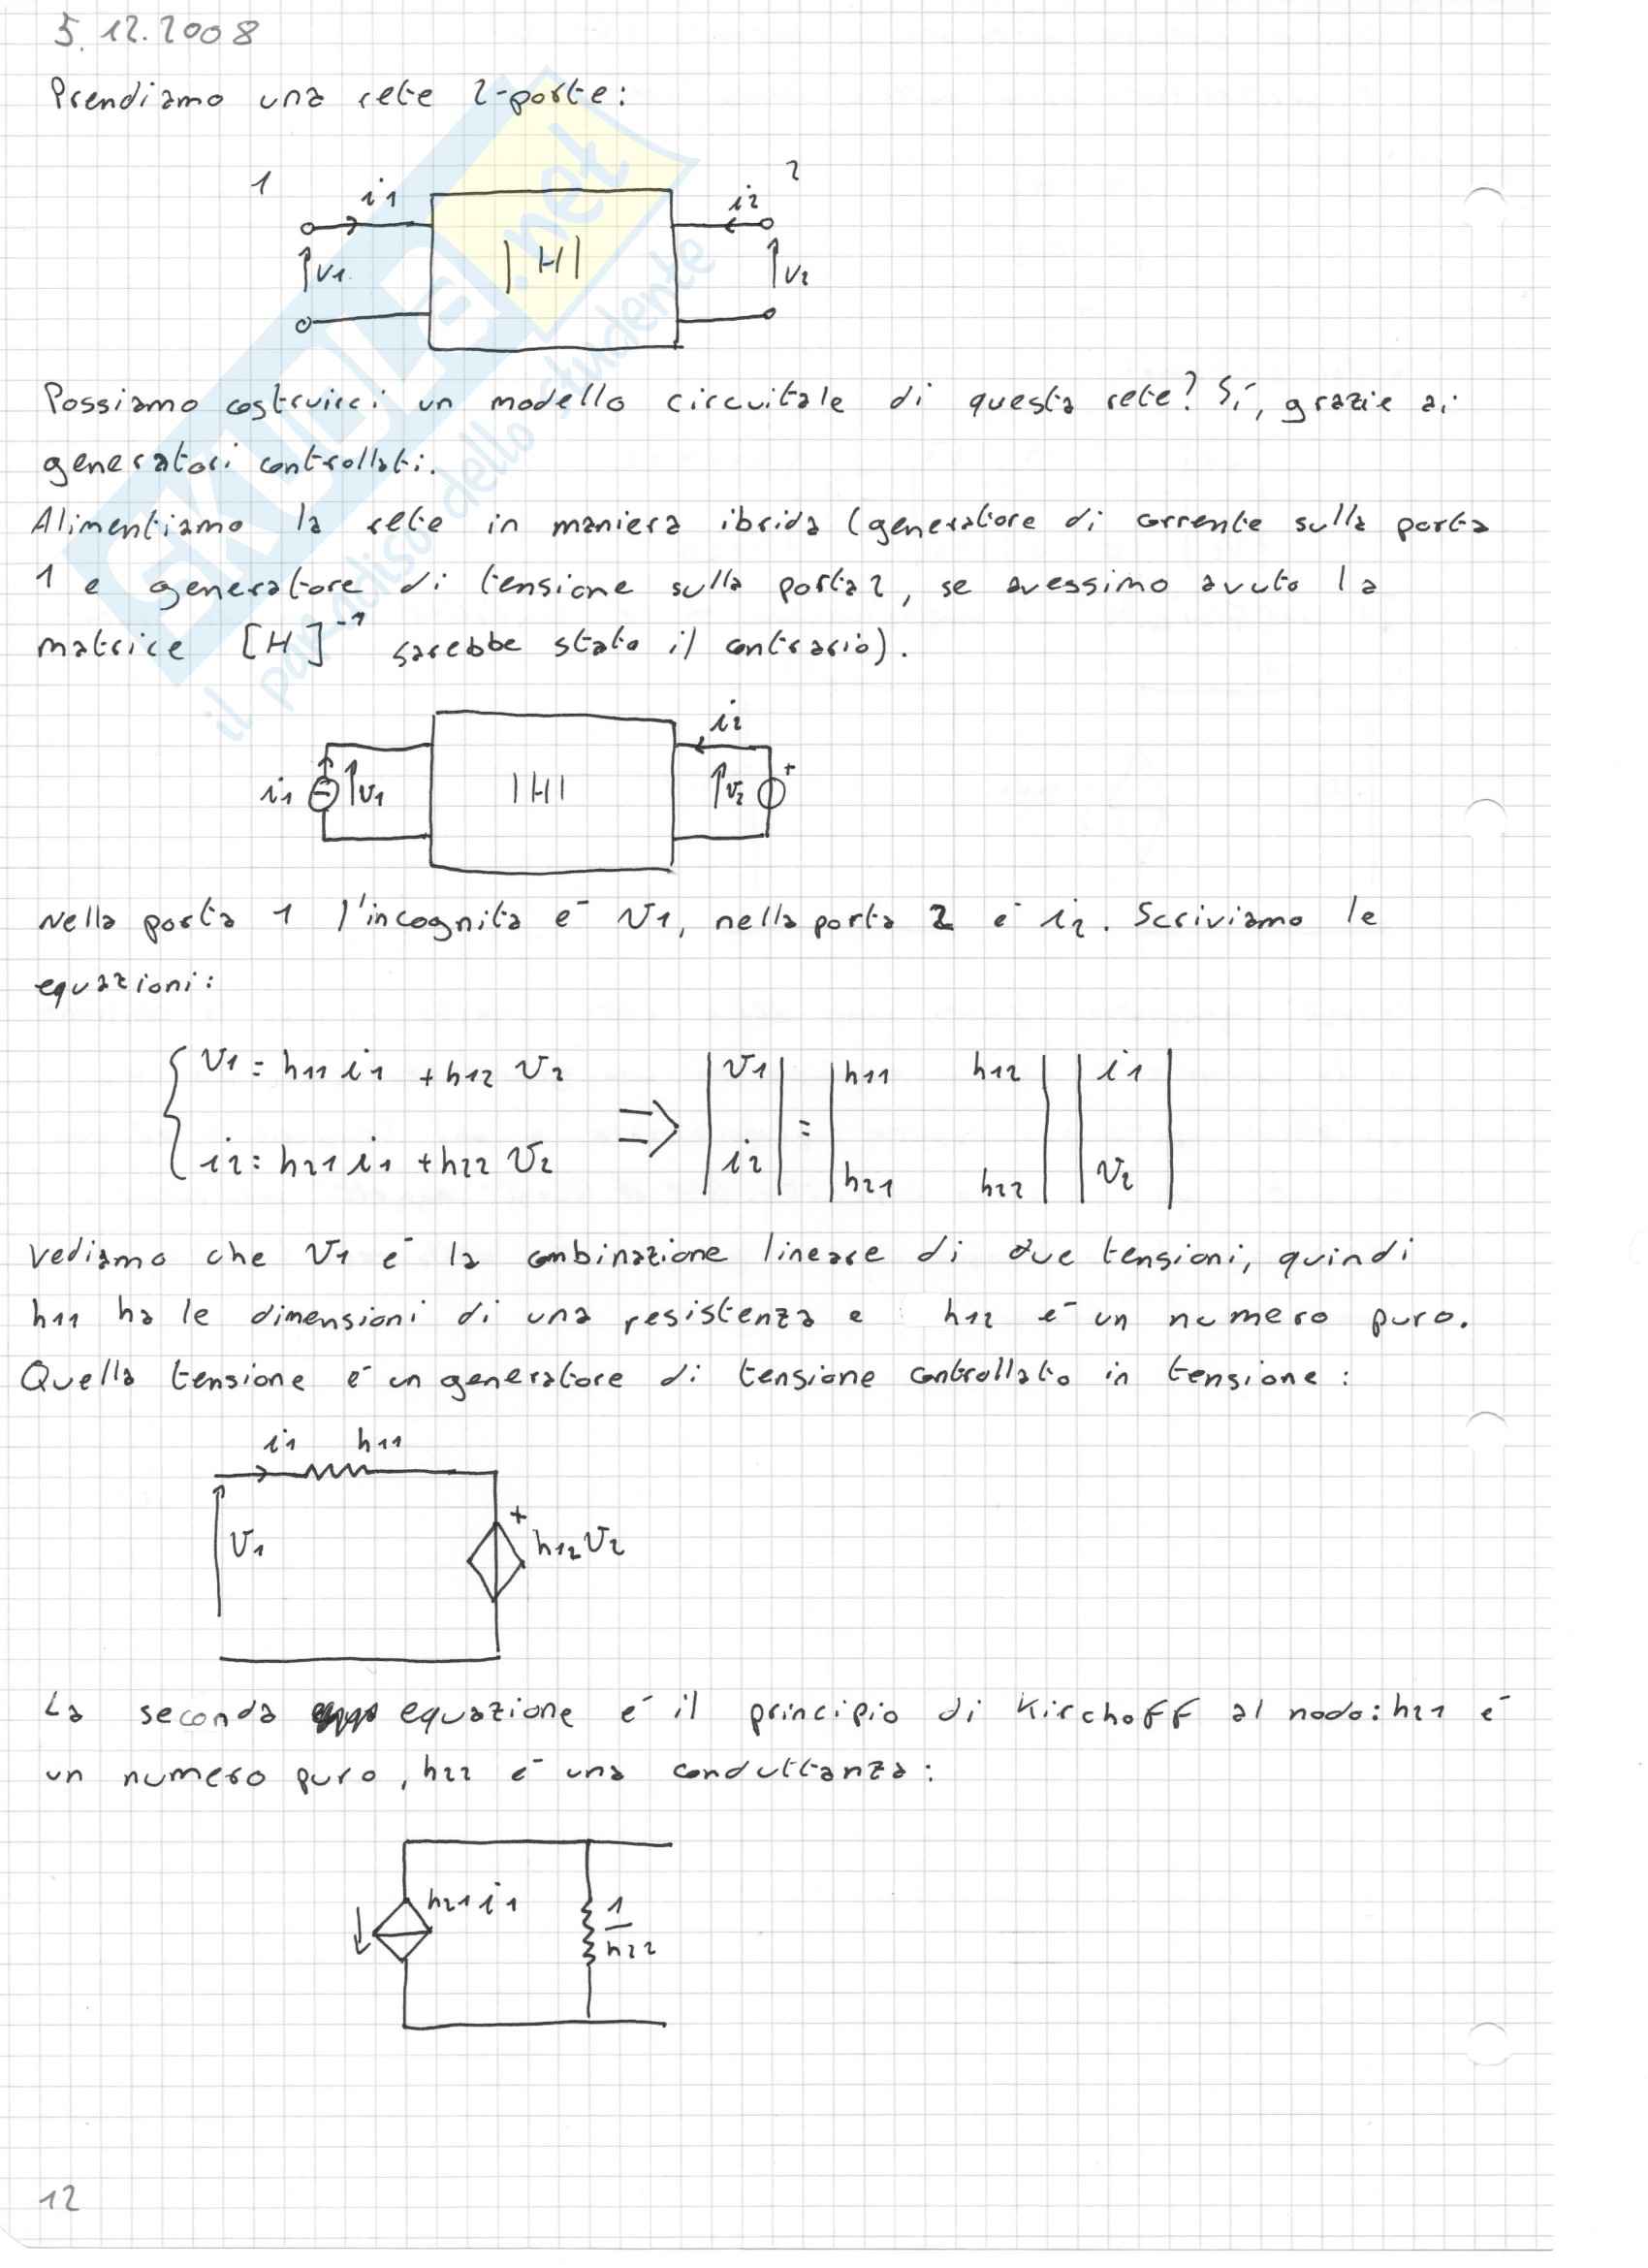 5.12.2008
Prendiamo una rete 2-porte:
1 i1 i2 2
v1 |H| v2
Possiamo costruirci un modello circuitale di questa rete? Sí, grazie ai
generatori controllati.
Alimentiamo la rete in maniera ibrida (generatore di corrente sulla porta
1 e generatore di tensione sulla porta 2, se avessimo avuto la
matrice [H]⁻¹ sarebbe stato il contrario).
i2
i1 v1 |H| v2 +
Nella porta 1 l'incognita é v1, nella porta 2 é i2. Scriviamo le
equazioni:
{ v1 = h11 i1 + h12 v2 ⇒ | v1 | = | h11 h12 | | i1 |
{ i2 = h21 i1 + h22 v2 | i2 | | h21 h22 | | v2 |
Vediamo che v1 é la combinazione lineare di due tensioni, quindi
h11 ha le dimensioni di una resistenza e h12 é un numero puro.
Quella tensione é un generatore di tensione controllato in tensione:
i1 h11
+
v1 h12 v2
La seconda equazione é il principio di Kirchoff al nodo: h21 é
un numero puro, h22 é una conduttanza:
h21 i1 1/h22
12
SKUOLA.net
il paradiso dello studente